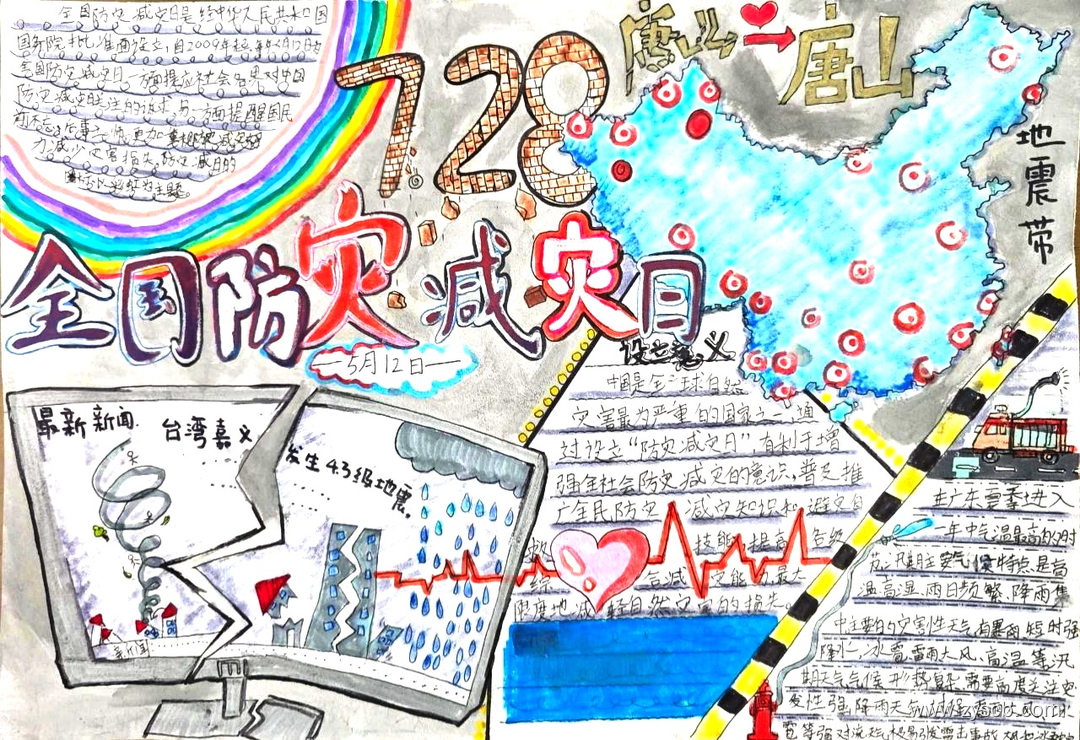 全国防灾减灾日是经中华人民共和国
国务院批准而设立,自2009年起,每年5月12日为
全国防灾减灾日。一方面提应社会各界对中国
防灾减灾关注的诉求,另一方面提醒国民
前不忘后事之师,更加重视防灾减灾努
力减少灾害损失。防灾减日的
图标以彩虹为主题。
728
唐山→唐山
地震带
全国防灾减灾日
5月12日
最新新闻
台湾嘉义
发生4.3级地震。
新闻
设立意义
中国是全球自然
灾害最为严重的国家之一,通
过设立“防灾减灾日”,有利于增
强全社会防灾减灾的意识,普及推
广全民防灾减灾知识和避灾自
救技能,提高各级
综合减灾能力,最大
限度地减轻自然灾害的损失。
走广东夏季进入
一年中气温最高的时
节,夏季主要气候特点是高
温高湿、雨日频繁、降雨集
中主要的灾害性天气有暴雨、短时强
降水、冰雹、雷雨大风、高温等汛
期天气气候形势复杂,需要高度关注突
发性强,降雨天气
雹等强对流天气极易引发雷击事故